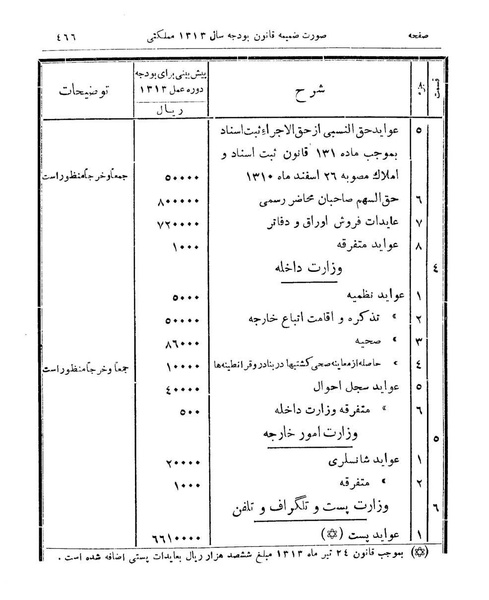 صفحه صورت ضمیمه قانون بودجه سال ۱۳۱۳ مملکتی ۴۶۶
قسمت ماده شرح پیش بینی برای بودجه دوره عمل ۱۳۱۳ ریال توضیحات
۵ عواید حق النسبی از حق الاجراء ثبت اسناد
بموجب ماده ۱۳۱ قانون ثبت اسناد و
املاک مصوبه ۲۶ اسفند ماه ۱۳۱۰ ۵۰۰۰۰ جمعاً و خرجاً منظور است
۶ حق السهم صاحبان محاضر رسمی ۸۰۰۰۰۰
۷ عایدات فروش اوراق و دفاتر ۷۲۰۰۰۰
۸ عواید متفرقه ۱۰۰۰
۴ وزارت داخله
۱ عواید نظمیه ۵۰۰۰
۲ » تذکره و اقامت اتباع خارجه ۵۰۰۰۰
۳ » صحیه ۸۶۰۰۰
۴ » حاصله از معاینه صحی کشتیها در بنادر و قرانطینه‌ها ۱۰۰۰۰ جمعاً و خرجاً منظور است
۵ عواید سجل احوال ۴۰۰۰۰
۶ » متفرقه وزارت داخله ۵۰۰
۵ وزارت امور خارجه
۱ عواید شانسلری ۲۰۰۰۰
۲ » متفرقه ۱۰۰۰
۶ وزارت پست و تلگراف و تلفن
۱ عواید پست (✡) ۶۶۱۰۰۰۰
(✡) بموجب قانون ۲۴ تیر ماه ۱۳۱۳ مبلغ ششصد هزار ریال بعایدات پستی اضافه شده است .